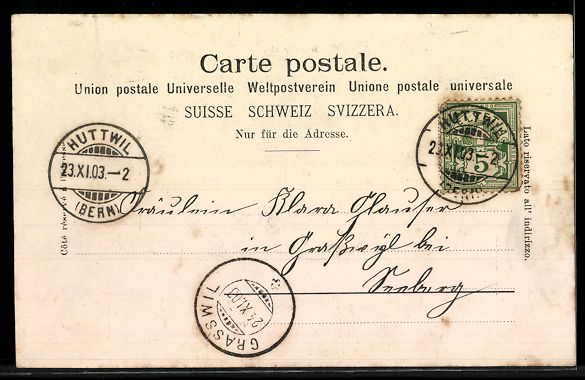 Carte postale.
Union postale Universelle Weltpostverein Unione postale universale
SUISSE SCHWEIZ SVIZZERA.
Nur für die Adresse.
HUTTWIL
23.XI.03.–2
(BERN)
HUTTWIL
23.XI.03.–2
(BERN)
5
Côté réservé à l'adresse
Lato riservato all' indirizzo.
Fräulein Klara Glauser
in Graßwyl bei
Seeberg
GRASSWIL